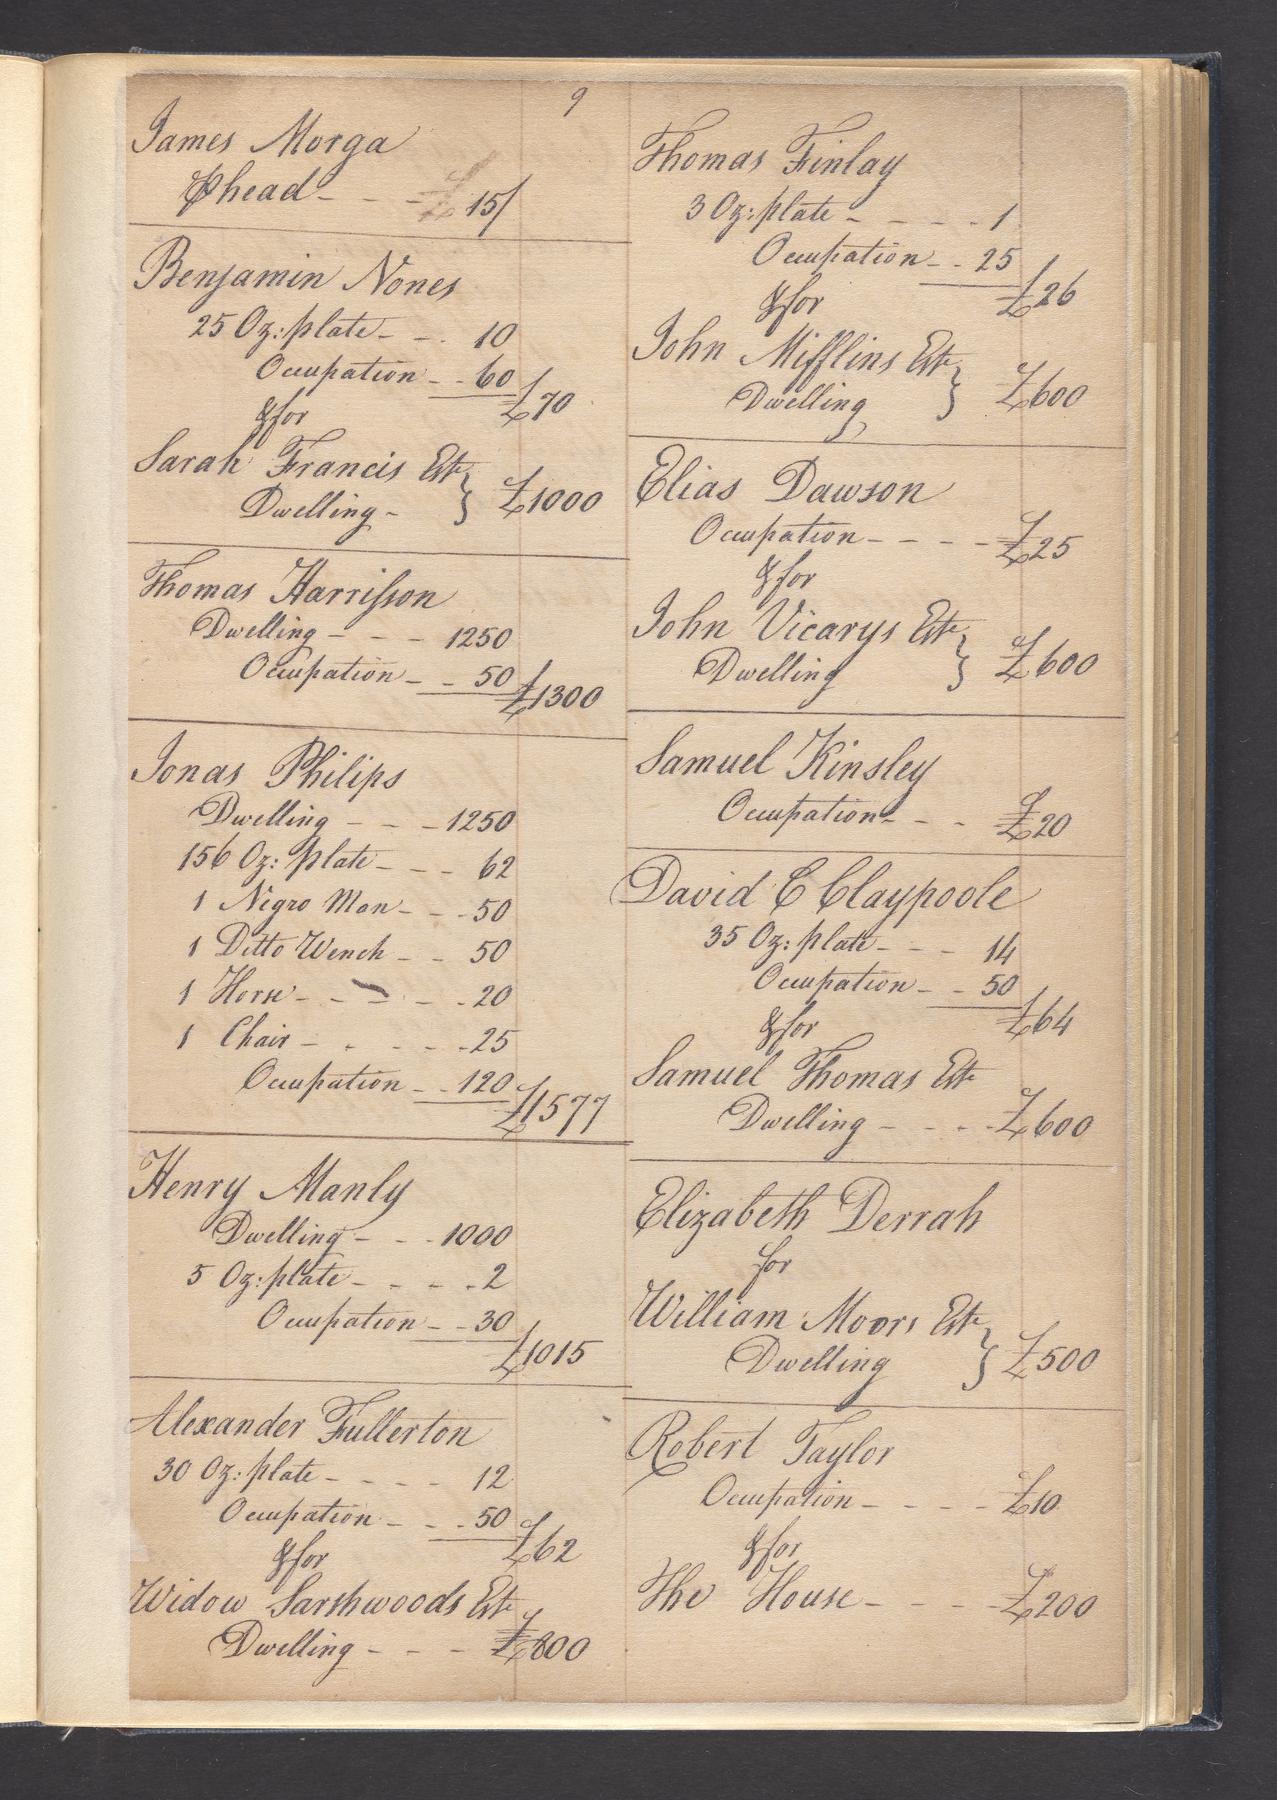 9
James Morga
℔ head - - - £ 15/
Benjamin Nones
25 Oz: plate - - - 10
Occupation - - 60
£70
& for
Sarah Francis Est
Dwelling - } £1000
Thomas Harrisson
Dwelling - - - 1250
Occupation - - 50
£1300
Jonas Philips
Dwelling - - - 1250
156 Oz: plate - - - 62
1 Negro Man - - - 50
1 Ditto Wench - - 50
1 Horse - - - - - 20
1 Chair - - - - - 25
Occupation - - 120
£1577
Henry Manly
Dwelling - - - 1000
5 Oz: plate - - - - 2
Occupation - - 30
£1015
Alexander Fullerton
30 Oz: plate - - - - 12
Occupation - - - 50
£62
& for
Widow Sarshwoods Est
Dwelling - - - £800
Thomas Finlay
3 Oz: plate - - - - 1
Occupation - - 25
£26
& for
John Mifflins Est
Dwelling } £600
Elias Dawson
Occupation - - - - £25
& for
John Vicarys Est
Dwelling } £600
Samuel Kinsley
Occupation - - - £20
David C Claypoole
35 Oz: plate - - - 14
Occupation - - 50
£64
& for
Samuel Thomas Est
Dwelling - - - - £600
Elizabeth Derrah
for
William Moors Est
Dwelling } £500
Robert Taylor
Occupation - - - - £10
& for
The House - - - - £200